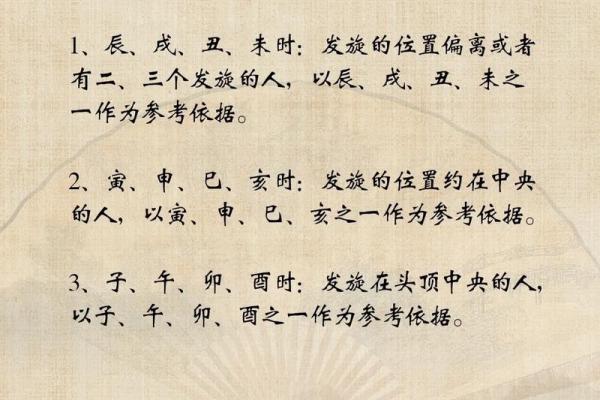 1、辰、戌、丑、未时：发旋的位置偏离或者
有二、三个发旋的人，以辰、戌、丑、未之
一作为参考依据。
2、寅、申、巳、亥时：发旋的位置约在中央
的人，以寅、申、巳、亥之一作为参考依据。
3、子、午、卯、酉时：发旋在头顶中央的人，
以子、午、卯、酉之一作为参考依据。